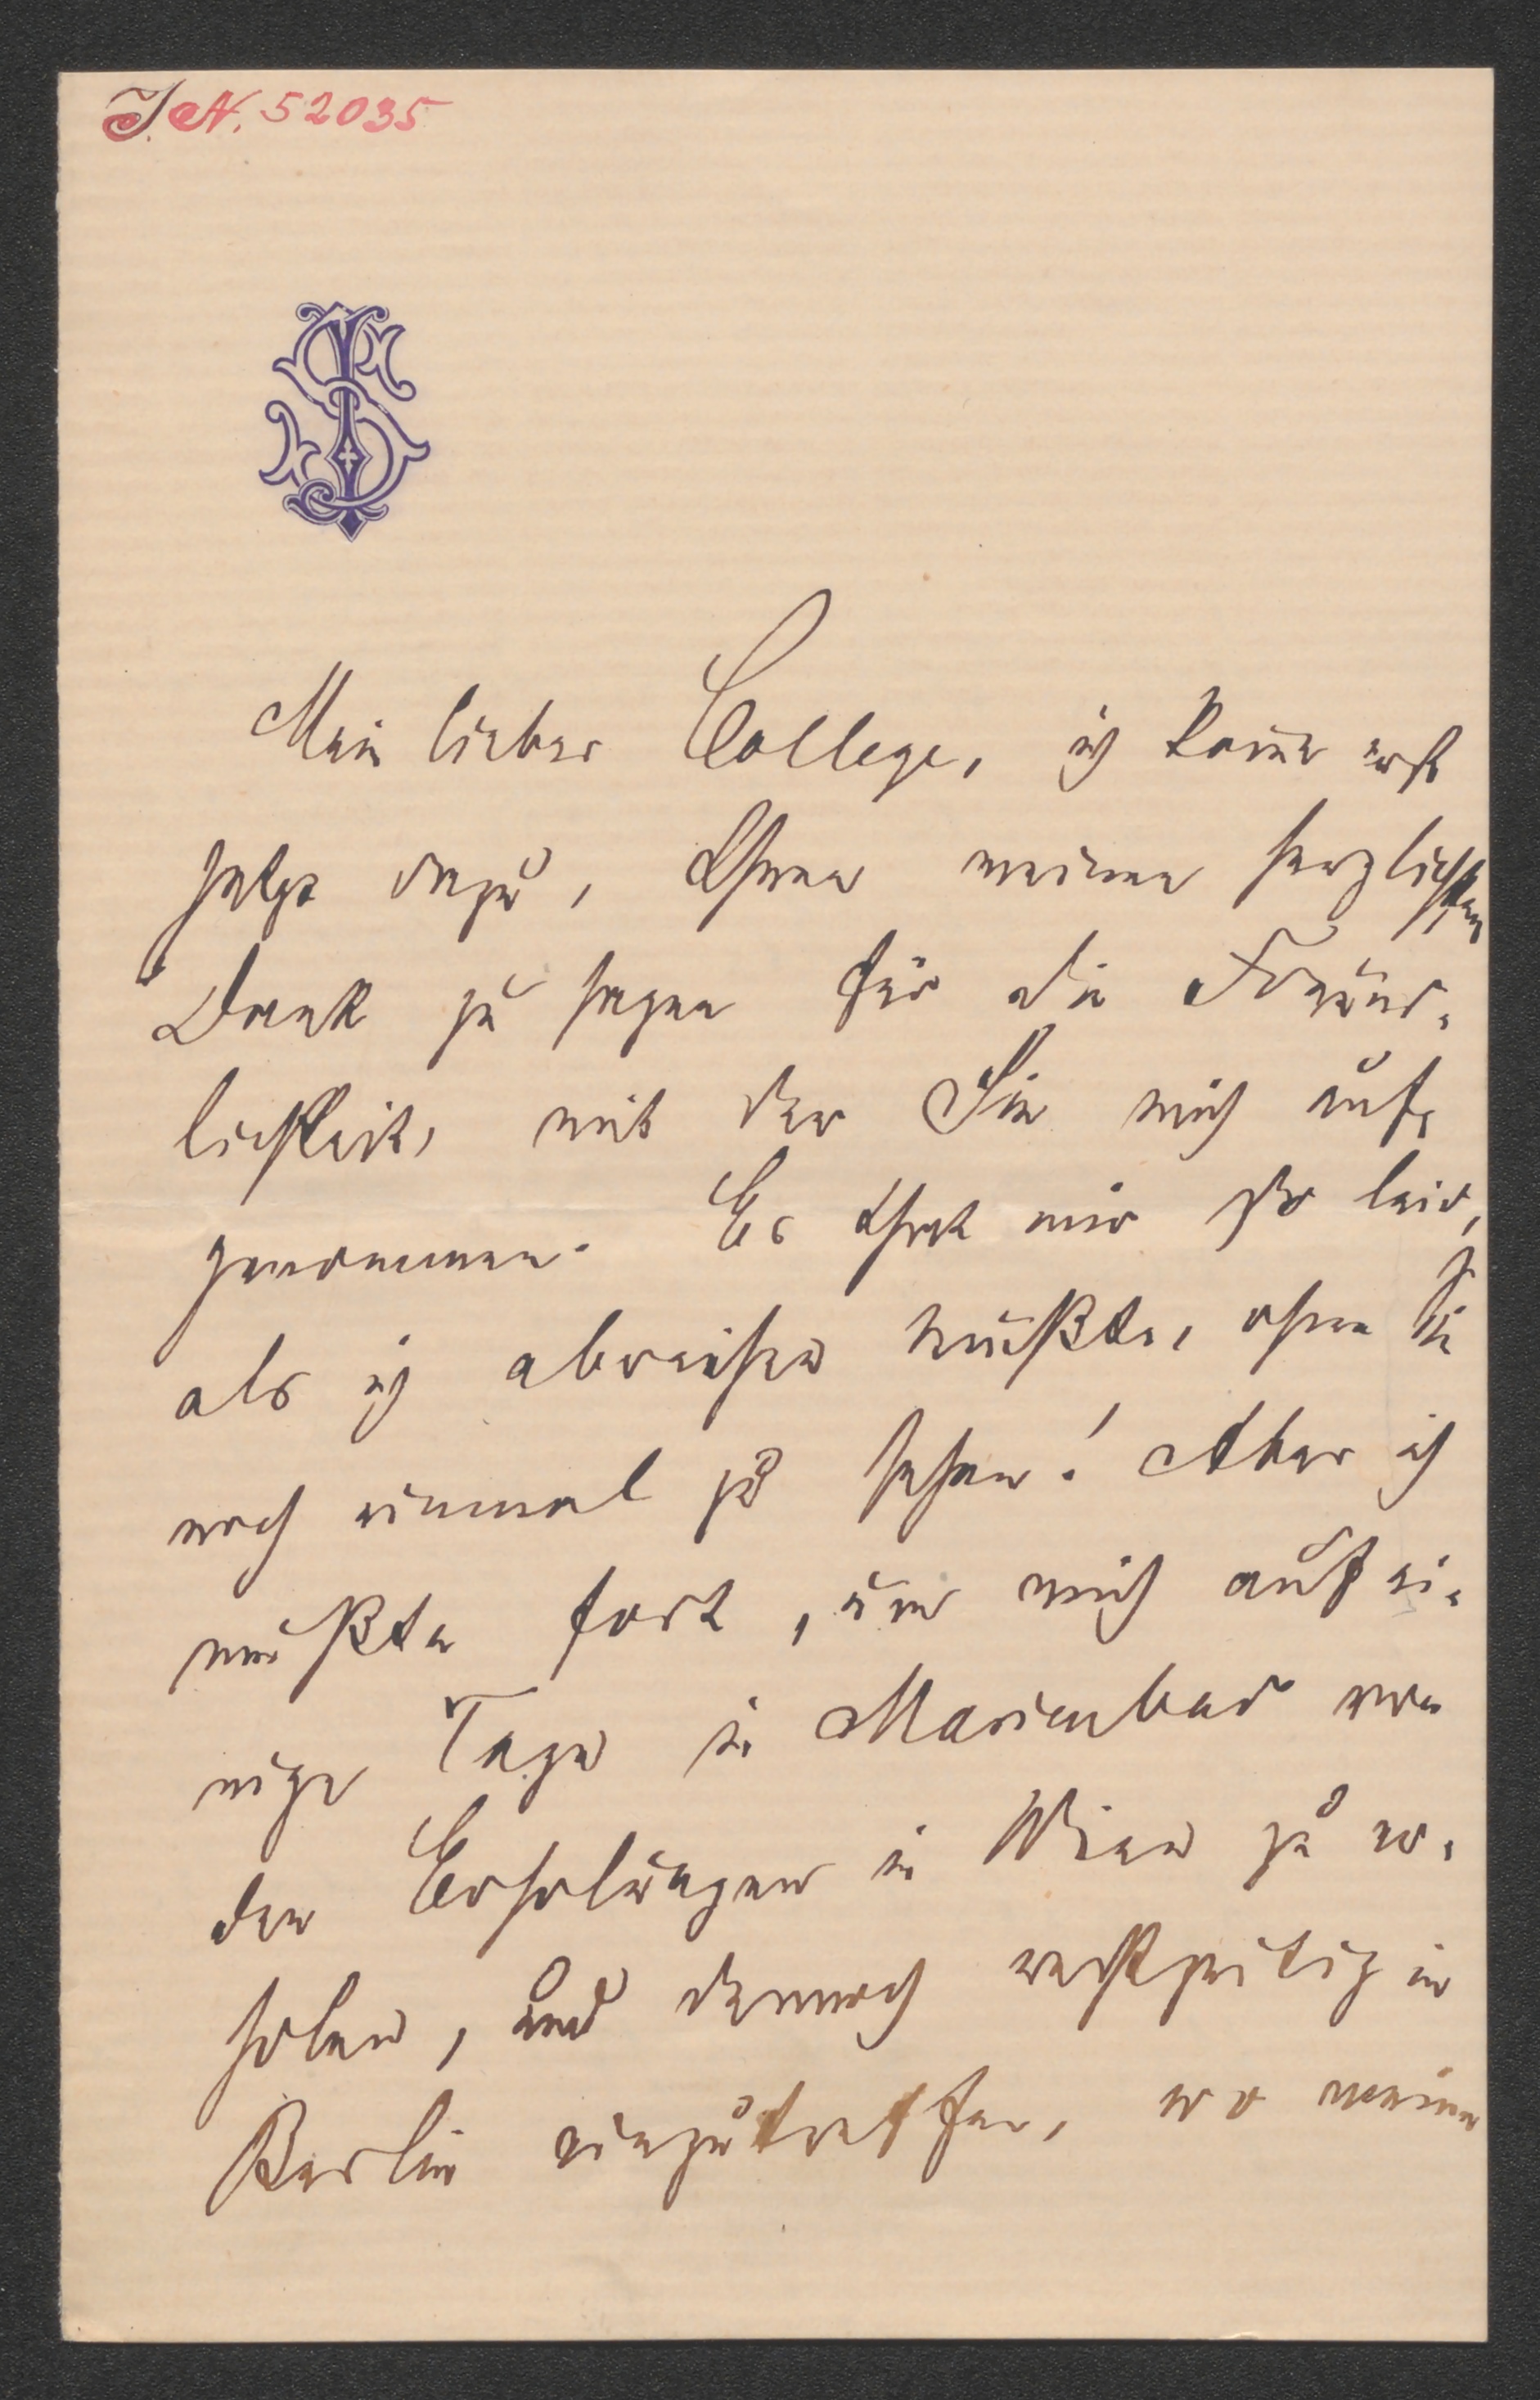 J.N. 52035
JS
Mein lieber College, ich komme erst
jetzt dazu, Ihnen meinen herzlichsten
Dank zu sagen für die Freund-
lichkeit, mit der Sie mich auf-
genommen. Es that mir so leid,
als ich abreisen mußte, ohne Sie
noch einmal zu sehen! Aber ich
mußte fort, um mich auf ei-
nige Tage in Marienbad von
den Erholungen in Wien zu er-
holen, und dennoch rechtzeitig in
Berlin einzutreffen, wo meine